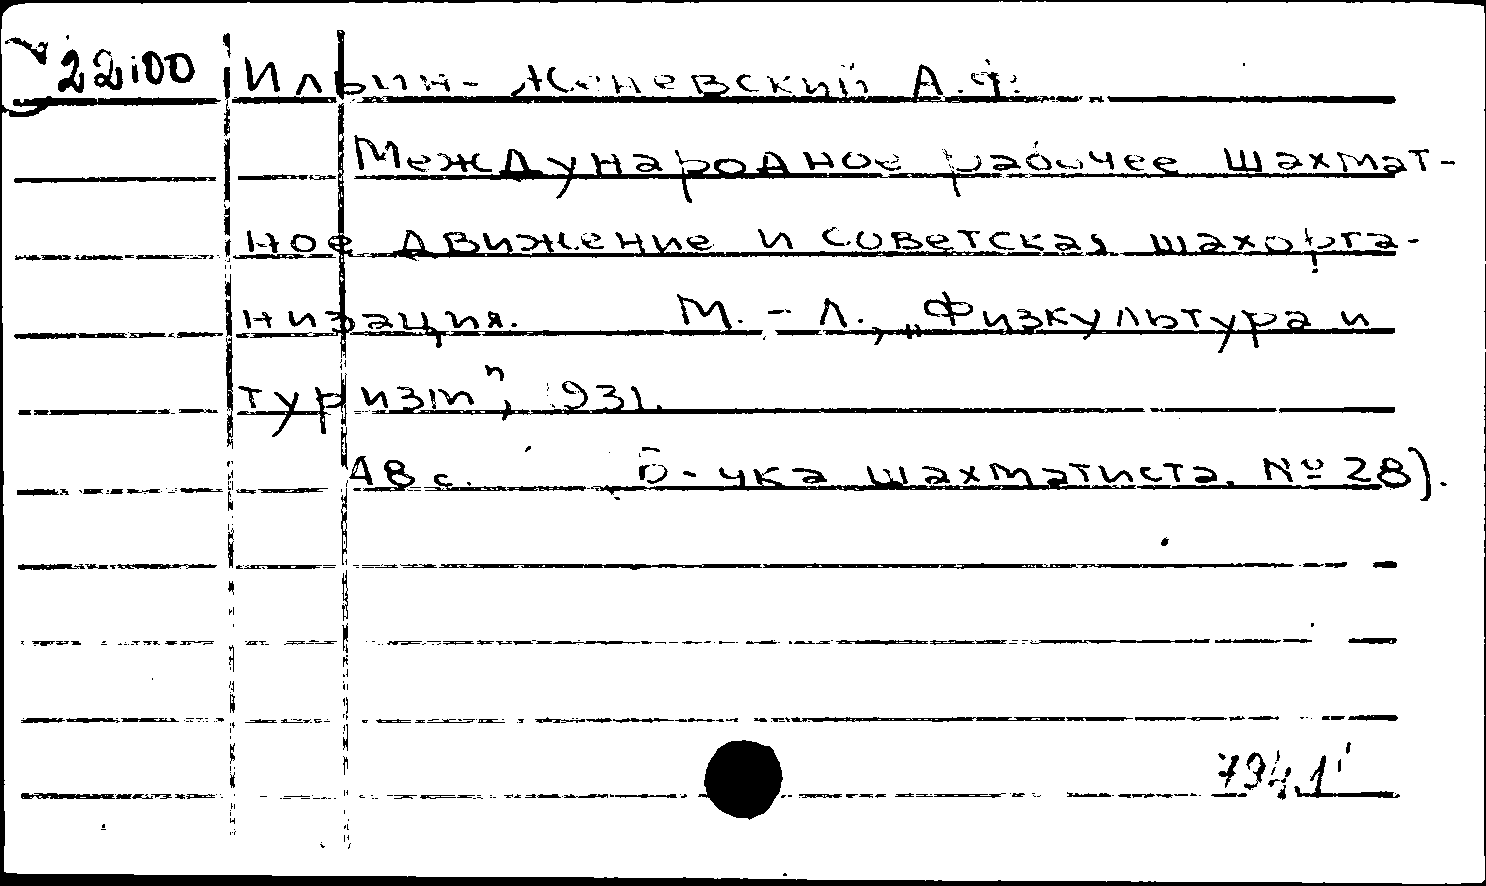 22100 Ильин-Женевский А.Ф.
Международное рабочее шахмат-
ное движение и советская шахорга-
низация. М.-Л., „Физкультура и
туризм", 1931.
48 с. Б-чка шахматиста. № 28).
794.1